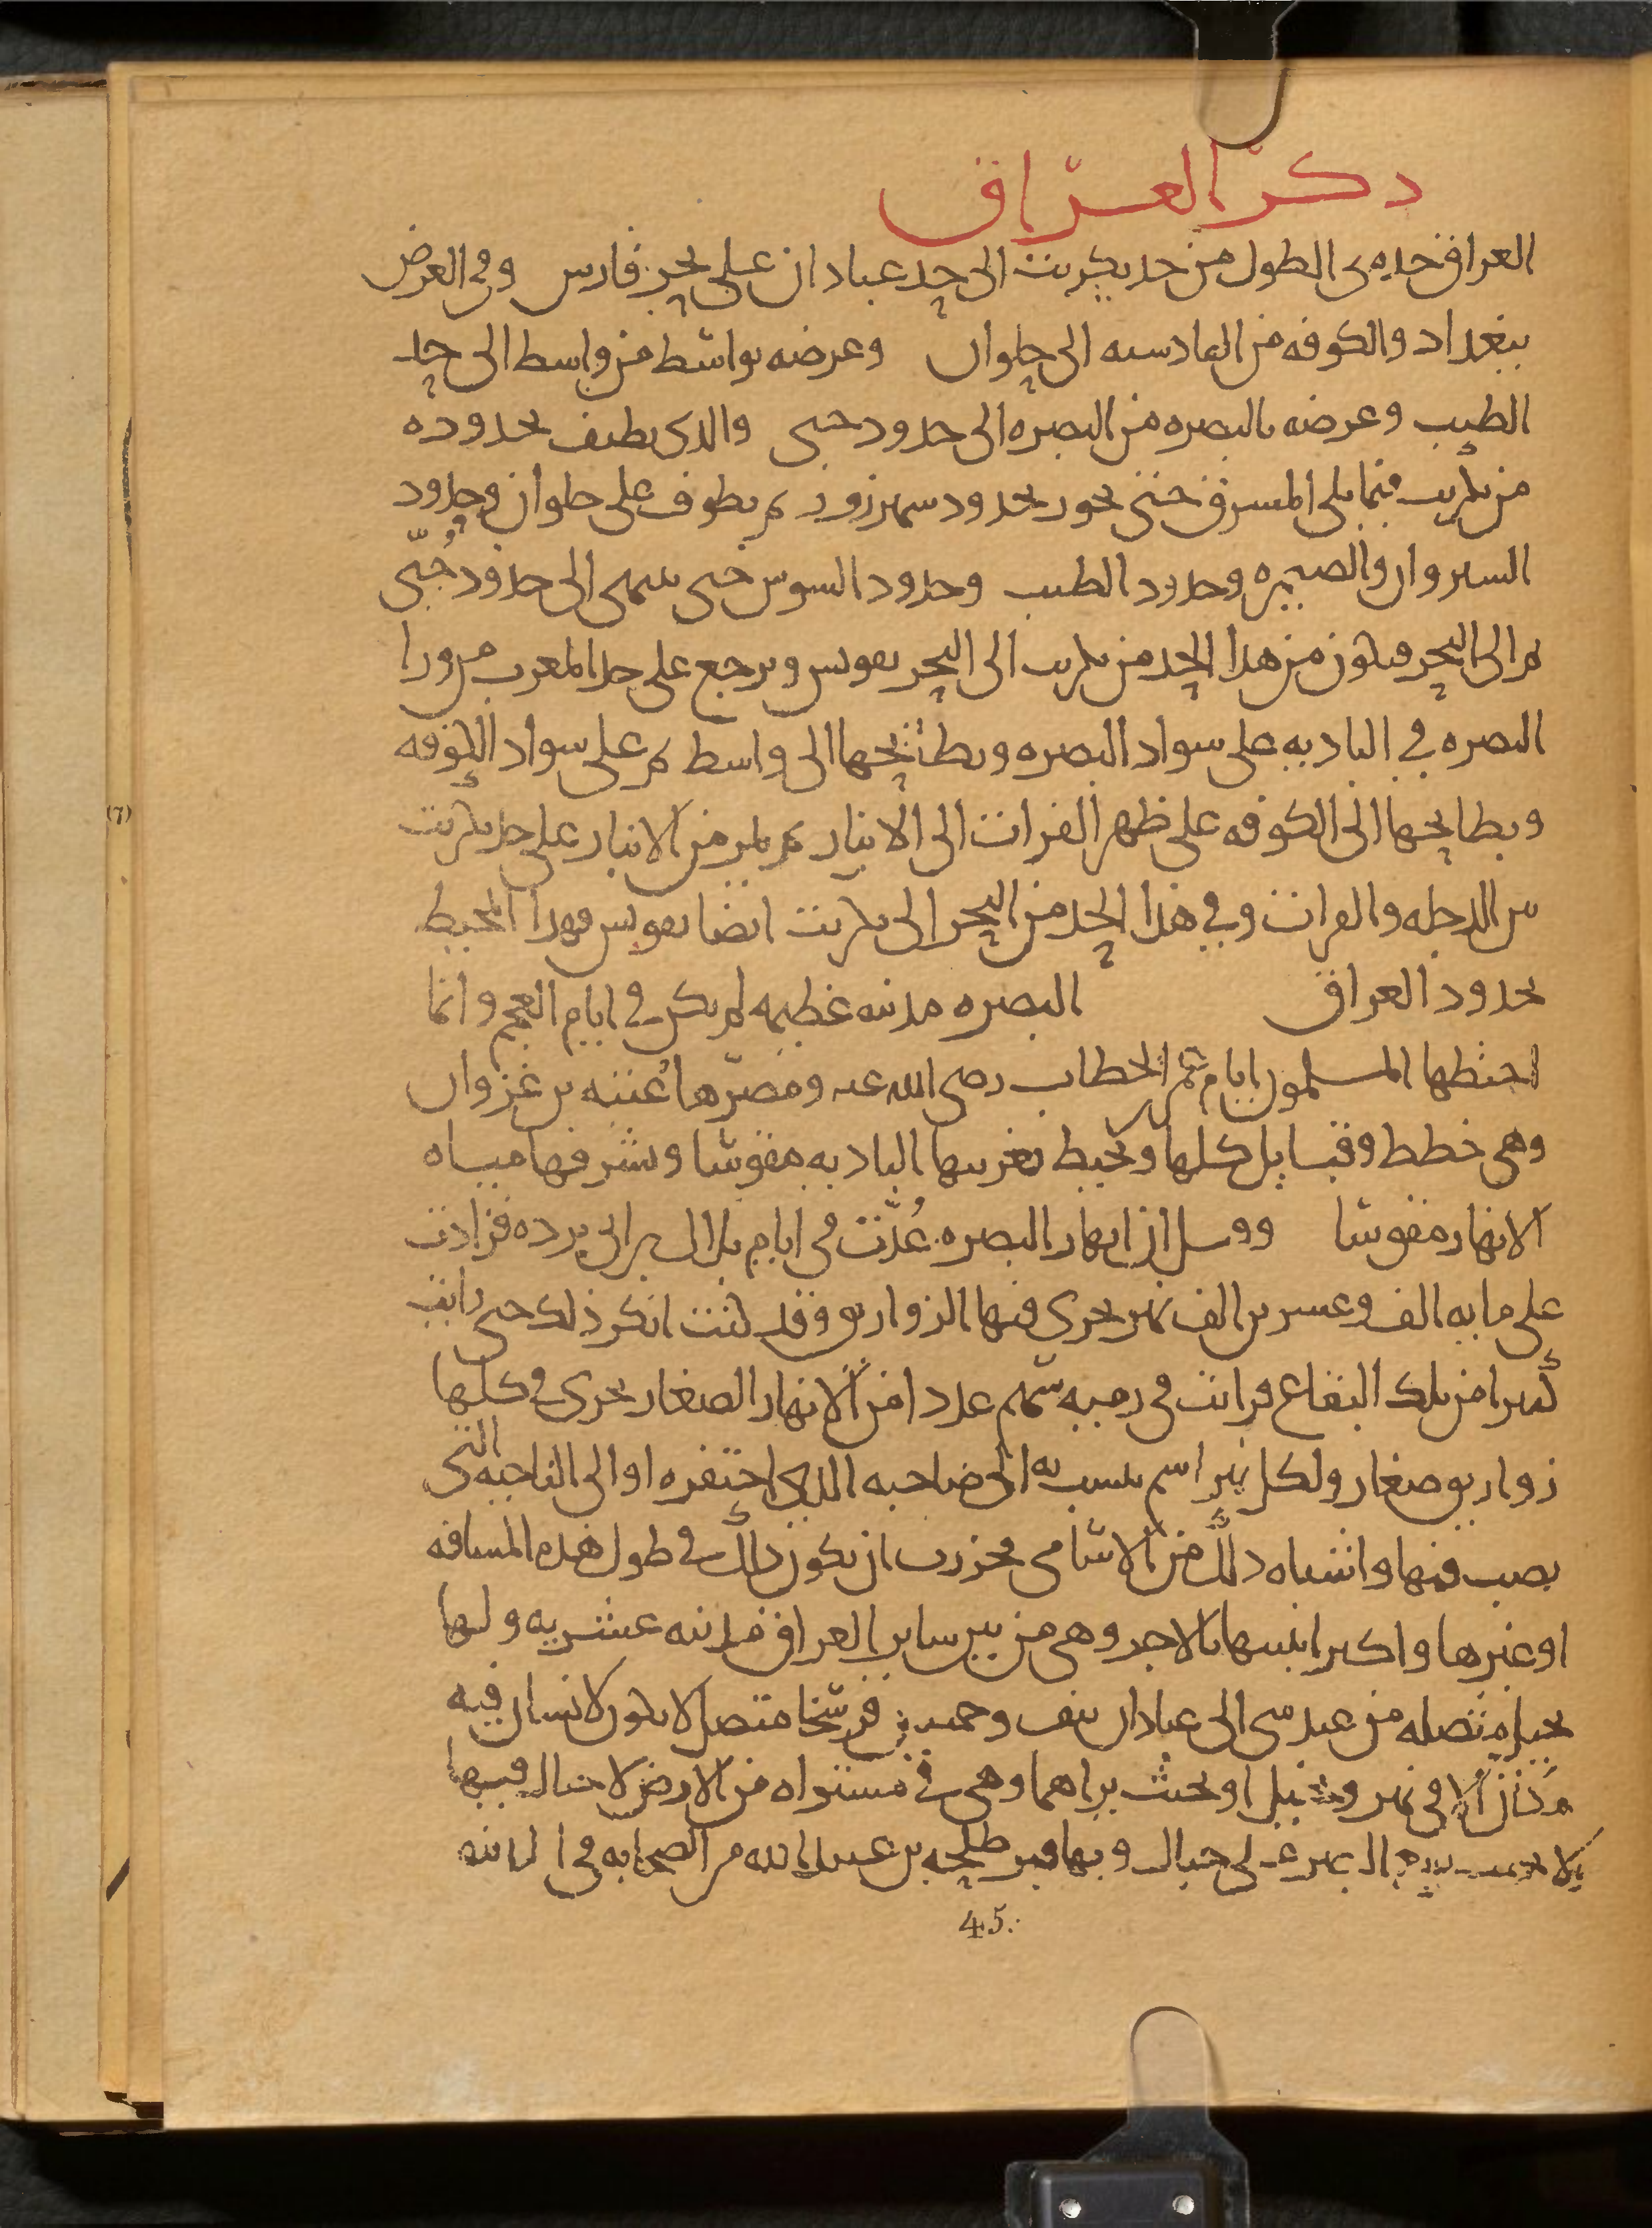 ذكر العراق
العراق حده في الطول من حد تكريت الى حد عبادان على بحر فارس وفي العرض
ببغداد والكوفه من القادسيه الى حلوان وعرضه بواسط من واسط الى حد
الطيب وعرضه بالبصره من البصره الى حدود جبى والذي يطيف بحدوده
من تكريت فيما يلي المشرق حتى يجوز بحدود شهرزور ثم يطوف على حلوان وحدود
السيروان والصيمره وحدود الطيب وحدود السوس حتى ينتهي الى حدود جُبّى
ثم الى البحر فيكون من هذا الحد من تكريت الى البحر تقويس ويرجع على حد المغرب من ورا
البصره في الباديه على سواد البصره وبطائحها الى واسط ثم على سواد الكوفه
وبطايحها الى الكوفه على ظهر الفرات الى الانبار ثم يمر من الانبار على حد تكريت
بين الدجله والفرات وفي هذا الحد من البحر الى تكريت ايضا تقويس فهذا المحيط
بحدود العراق البصره مدينه عظيمه لم تكن في ايام العجم وانما
اختطها المسلمون ايام عمر بن الخطاب رضى الله عنه ومصّرها عُتبه بن غزوان
وهي خطط وقبايل كلها ويحيط بغربيها الباديه مقوسا وبشرقها مياه
الانهار مقوسا وقيل ان انهار البصره عُدّت في ايام بلال بن ابي برده فزادت
على مايه الف وعشرين الف نهر يجري فيها الزواريق وقد كنت انكر ذلك حتى رايت
كثيرا من تلك البقاع فرايت في رميه سهم عددا من الانهار الصغار يجرى في كلها
زواريق صغار ولكل نهر اسم ينسب به الى صاحبه الذي احتفره او الى الناحيه التي
يصب فيها واشباه ذلك من الاسامي فجوزت ان يكون ذلك في طول هذه المسافه
او غيرها واكبر ابنيتها بالاجر وهي من بين ساير العراق مدينه عشريه ولها
نخيل متصله من عبدسي الى عبادان نيف وخمسين فرسخا متصلا لا يكون الانسان فيه
مكان الا في نهر ونخيل او بحيث يراهما وهي في مستواه من الارض لا جبال فيها
البصر على جبال وبها قبر طلحه بن عبيد الله من الصحابه في المدينه
45